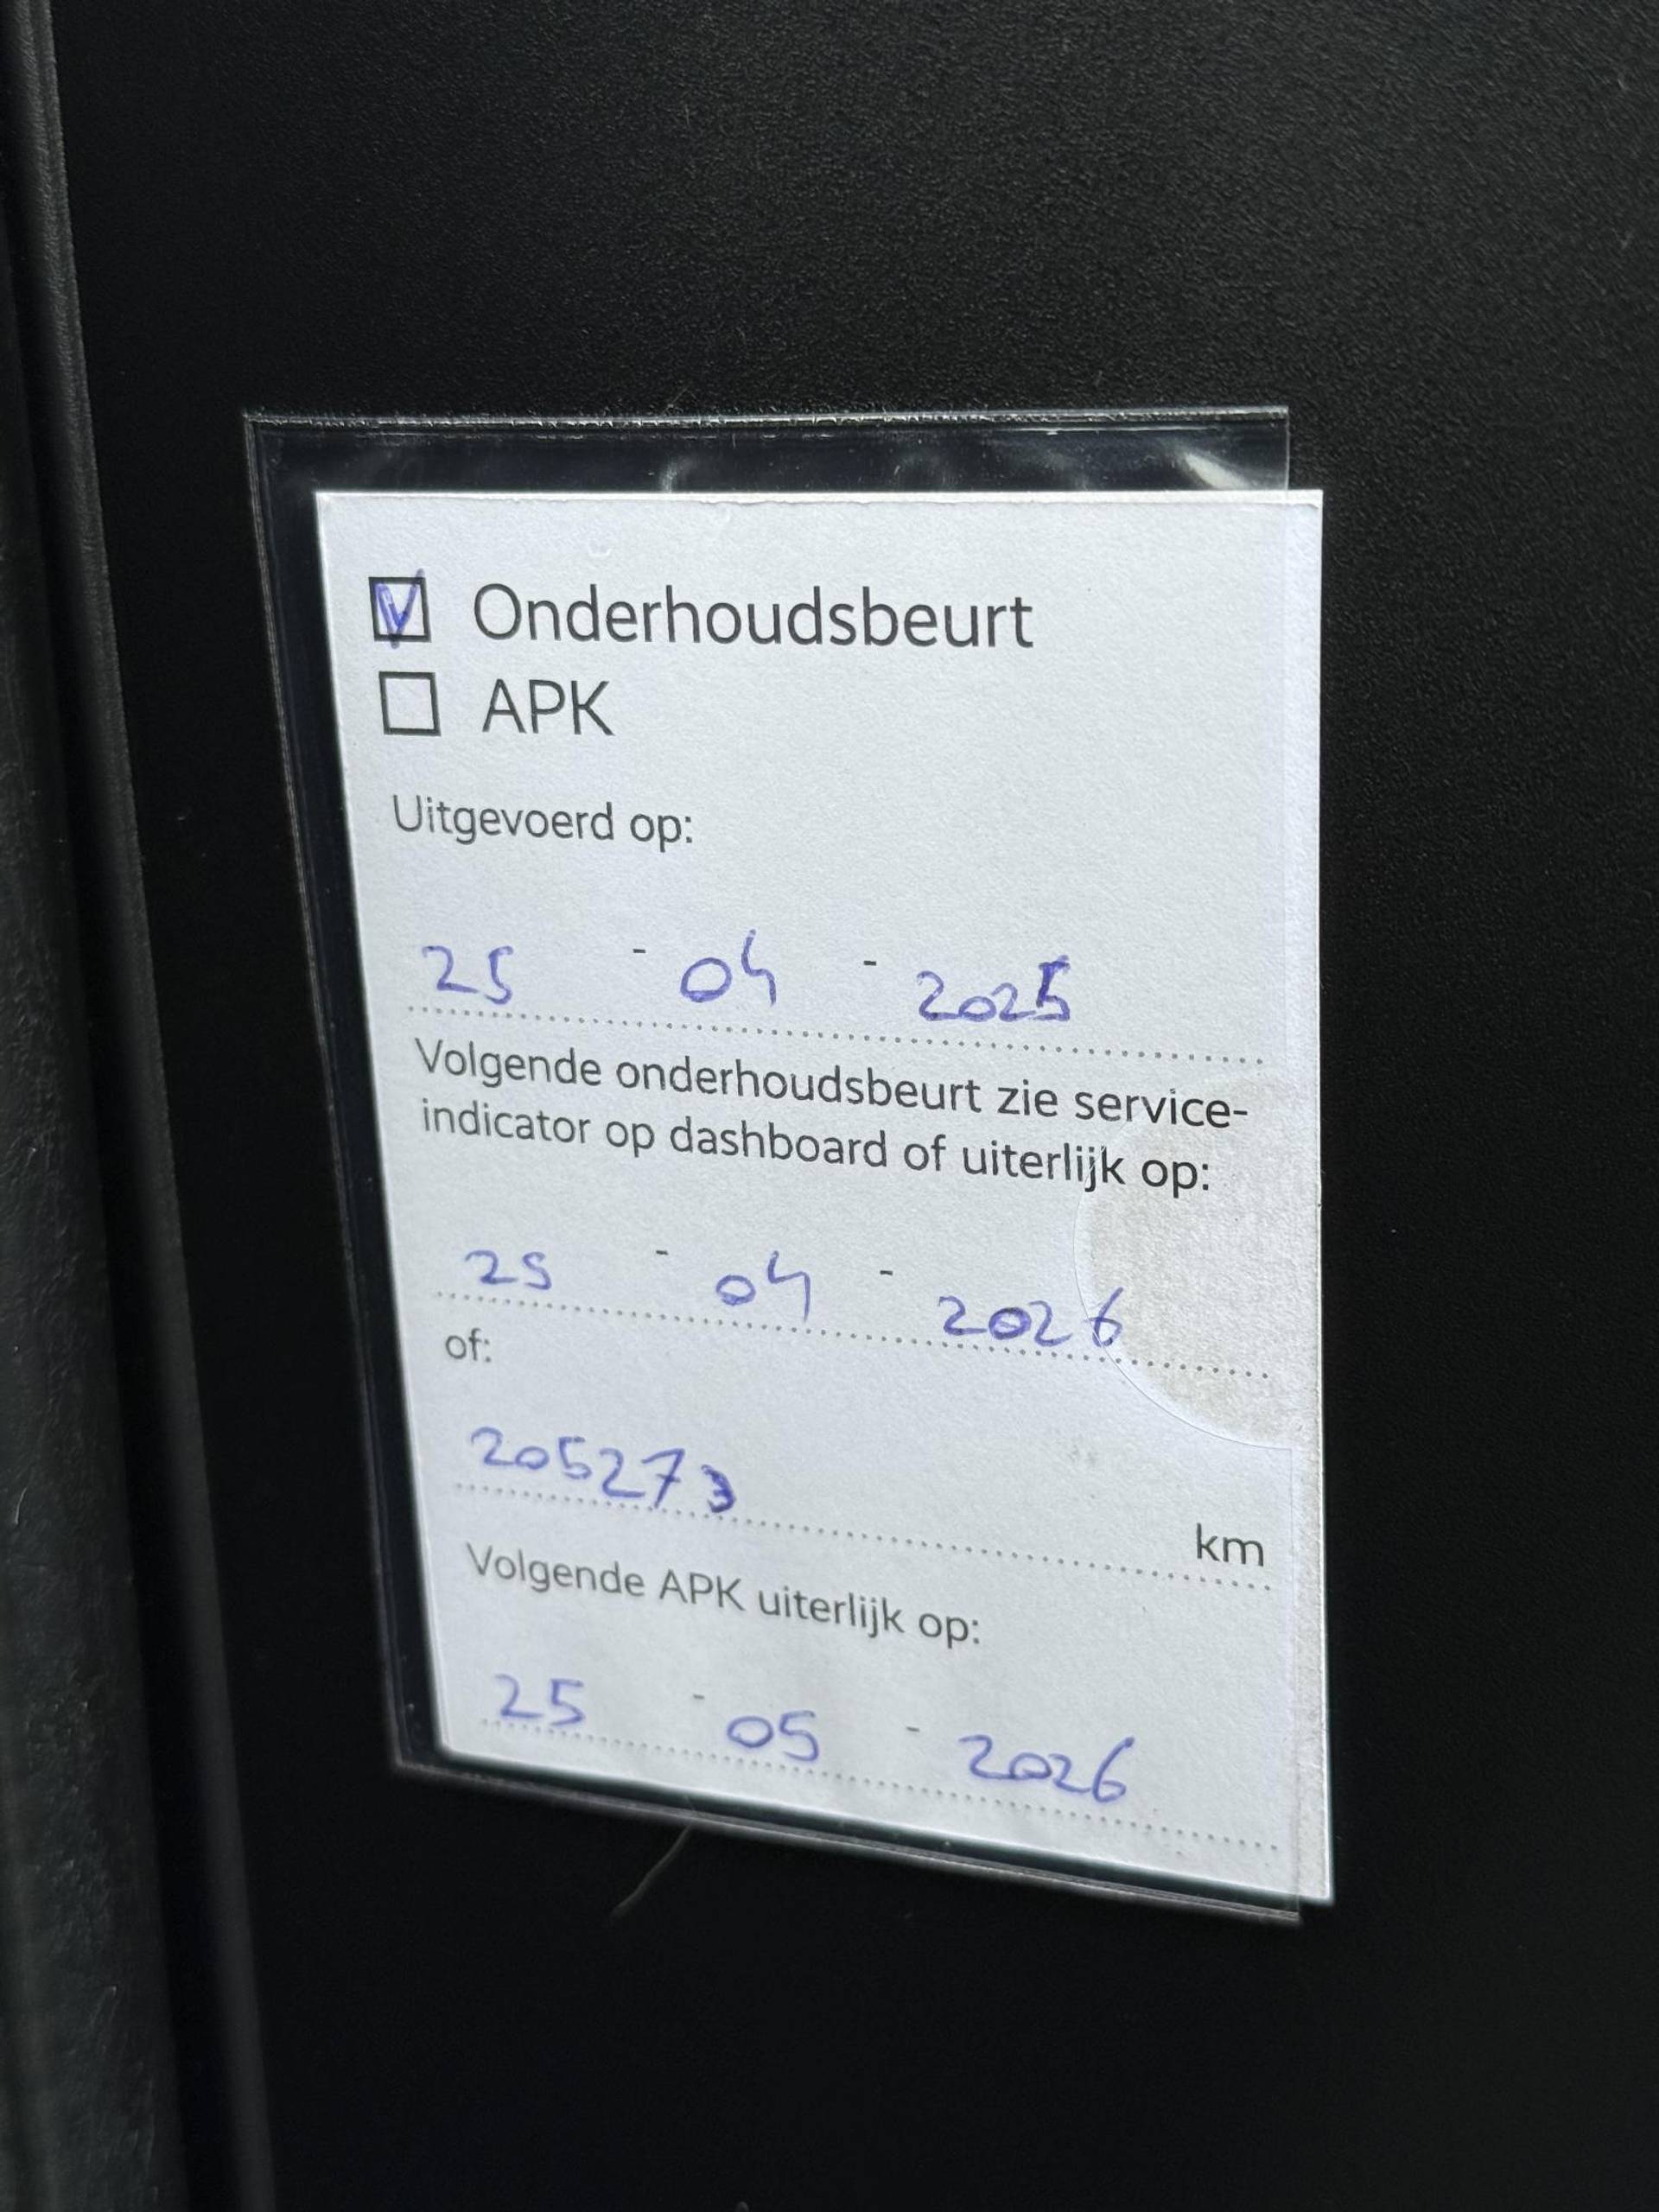 Onderhoudsbeurt
APK
Uitgevoerd op:
25 - 04 - 2025
Volgende onderhoudsbeurt zie service-
indicator op dashboard of uiterlijk op:
25 - 04 - 2026
of:
205273 km
Volgende APK uiterlijk op:
25 - 05 - 2026